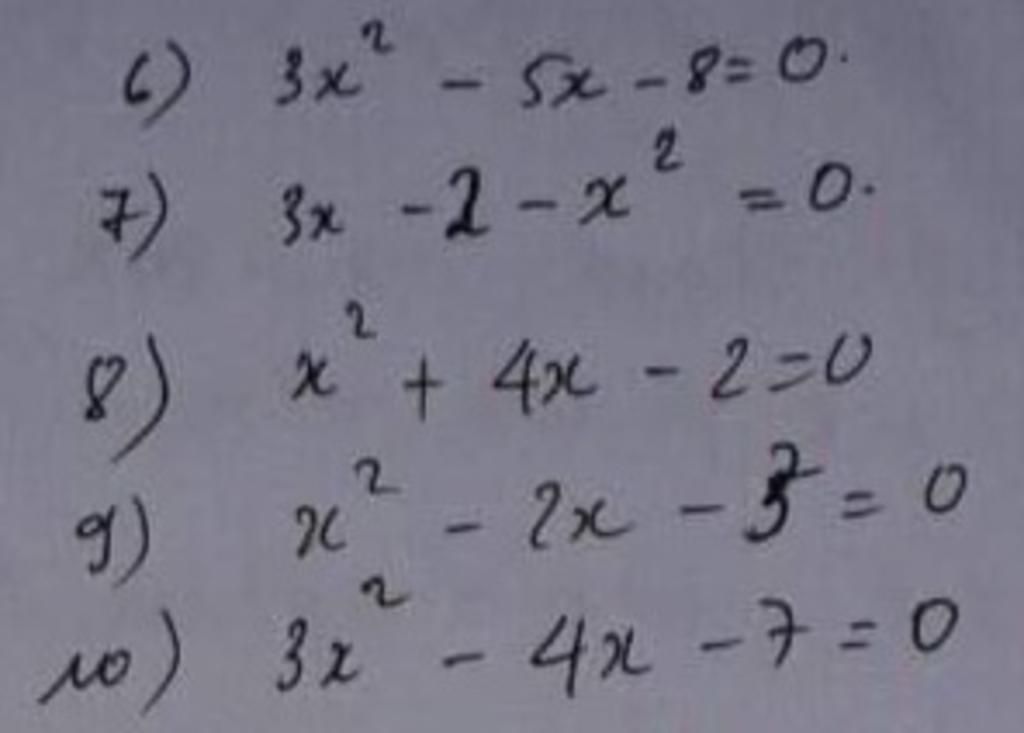 6) 3x² - 5x - 8 = 0.
7) 3x - 2 - x² = 0.
8) x² + 4x - 2 = 0
9) x² - 2x - = 0
10) 3x² - 4x - 7 = 0